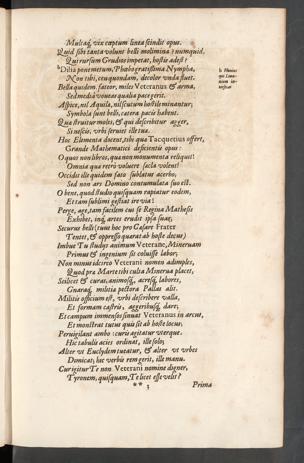 Mulcaq, vix cœptum linea scindit opus.
Quid sibi tanta volunt belli molimina? numquid,
Qui rursum Gradivo impetat, hostis adest?
Dilia pone metum, Phœbo gratissima Nympha,
Non tibi, ceu quondam, decolor unda fluet.
Bella quidem fateor, miles Veteranus & arma,
Sed mediâ voveas qualia pace geri.
Aspice, nil Aquila, nil scutum hostile minantur;
Symbola sunt belli, cætera pacis habent.
Qua struitur moles, & qui describitur agger,
Si nescis, urbi serviet ille tuæ.
Hoc Elementa docent, tibi quæ Tacquetius offert,
Grande Mathematici deficientis opus:
O quos non libros, quæ non monumenta reliquit!
Omnia qua retrò volvere sæcla volent!
Occidit ille quidem fato sublatus acerbo,
Sed non ars Domino contumulata suo est.
O bene, quod studio quisquam rapiatur eodem,
Et tam sublimi gestiat ire via!
Perge, age, tam facilem cui se Regina Mathesis
Exhibet, inq, artes erudit ipsa suas;
Securus belli (tuus hoc pro Cæsare Frater
Tentet, & oppressis quærat ab hoste decus)
Imbue Tu studijs animum Veterane, Minervam
Primus & ingenium sic coluisse labor;
Non minus idcirco Veterani nomen adimples,
Quod pra Marte tibi culta Minerva placet,
Scilicet & curas, animosq, acresq, labores,
Gnaraq, militiæ pectora Pallas alit.
Militis officium est, urbi describere valla,
Et formam castris, aggeribusq, dare,
Et campum immensos sinuat Veteranus in arcus,
Et monstrat tutus quis sit ab hoste locus;
Pervigilant ambo: curis agitatur uterque.
Hic tabulis acies ordinat, ille solo;
Alter ut Euclydem tueatur, & alter ut urbes
Domicat; hic verbis rem gerit, ille manu.
Cur igitur Te non Veterani nomine digner,
Tyronem, quisquam, Te licet esse velit?
* * 3
Prima